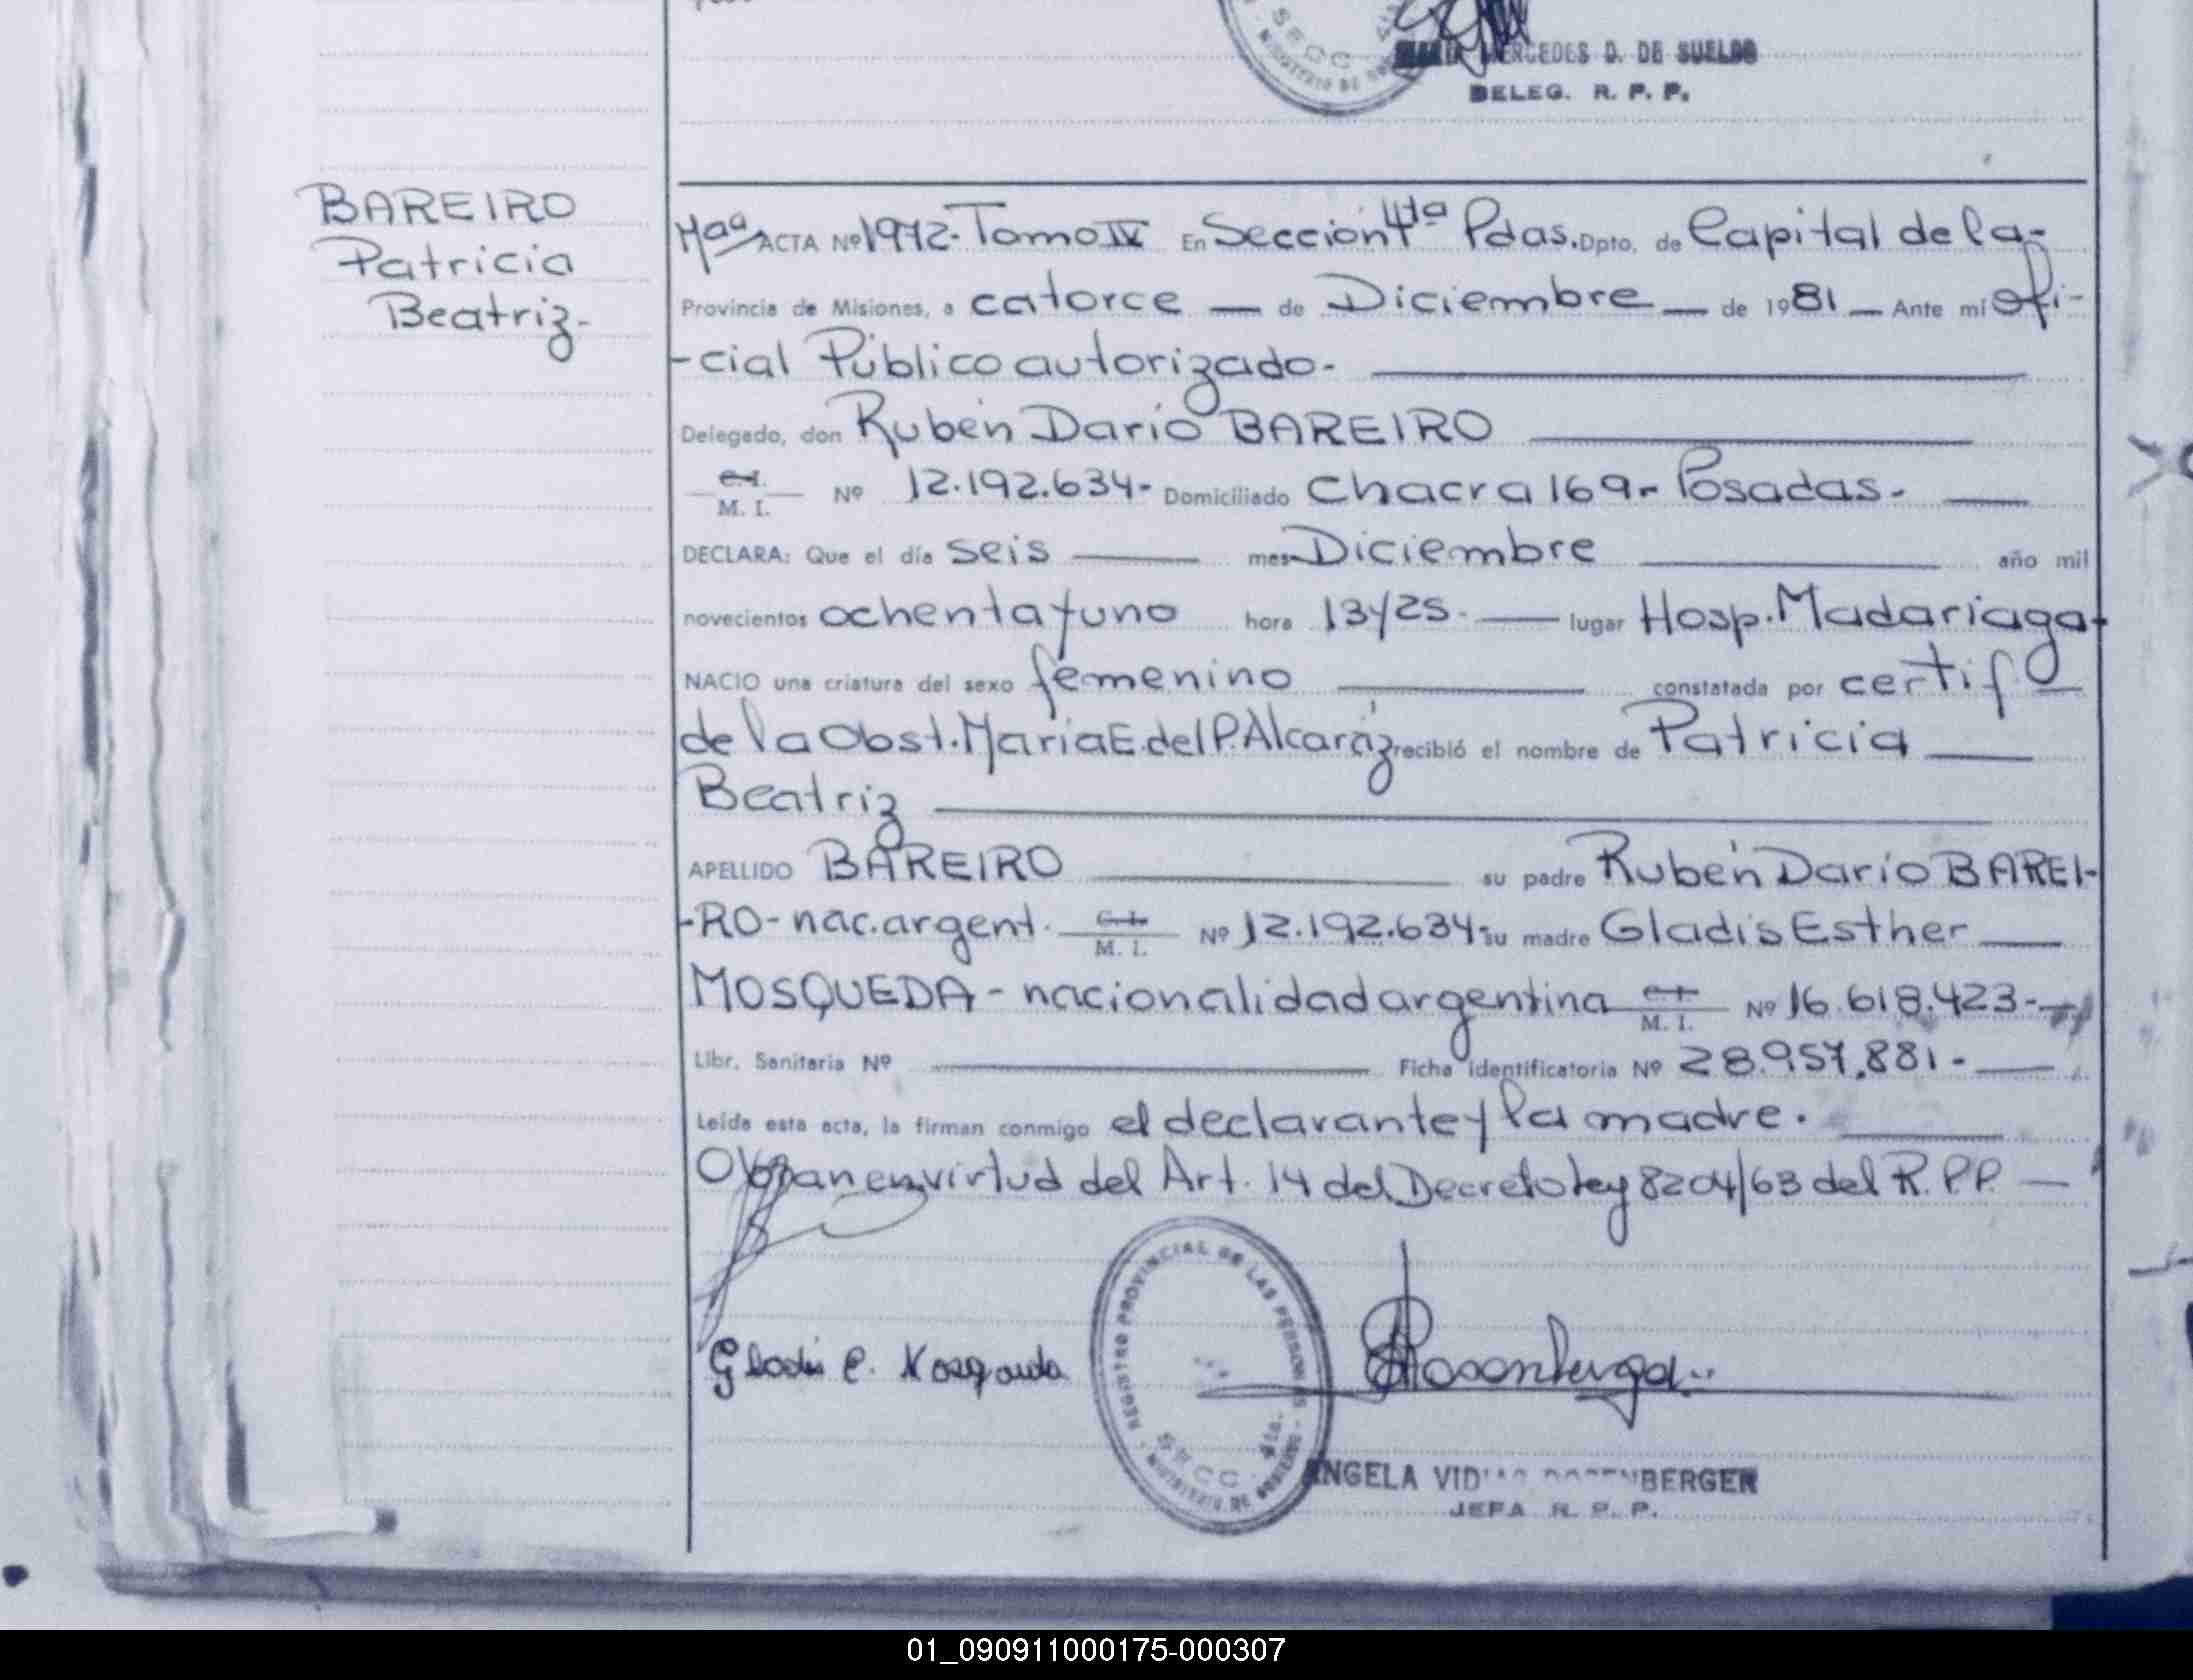 SECC
MERCEDES D. DE SUELDO
DELEG. R. P. P.
BAREIRO
Patricia
Beatriz-
ACTA Nº 1972- Tomo IV En Sección 4ta Pdas. Dpto. de Capital de la-
Provincia de Misiones, a catorce — de Diciembre — de 1981 — Ante mi ofi-
-cial Público autorizado-
Delegado, don Rubén Darío BAREIRO
C.I. M. I. Nº 12.192.634- Domiciliado Chacra 169- Posadas-
DECLARA: Que el día seis mes Diciembre año mil
novecientos ochenta y uno hora 13y25- lugar Hosp. Madariaga-
NACIO una criatura del sexo femenino constatada por certif
de la Obst. María E. del P. Alcaráz recibió el nombre de Patricia
Beatriz
APELLIDO BAREIRO su padre Rubén Darío BAREI-
-RO- nac. argent. C.I. M. I. Nº 12.192.634- su madre Gladis Esther
MOSQUEDA - nacionalidad argentina C.I. M. I. Nº 16.618.423-
Libr. Sanitaria Nº Ficha identificatoria Nº 28.957.881-
Leída esta acta, la firman conmigo el declarante y la madre.
Obran en virtud del Art. 14 del Decreto ley 8204/63 del R.P.P. —
REGISTRO PROVINCIAL DE LAS PERSONAS
SECC 4ta.
MINISTERIO DE GOBIERNO
Gladis E. Mosqueda
Rosenberger
ANGELA ROSENBERGER
JEFA R. P. P.
01_090911000175-000307